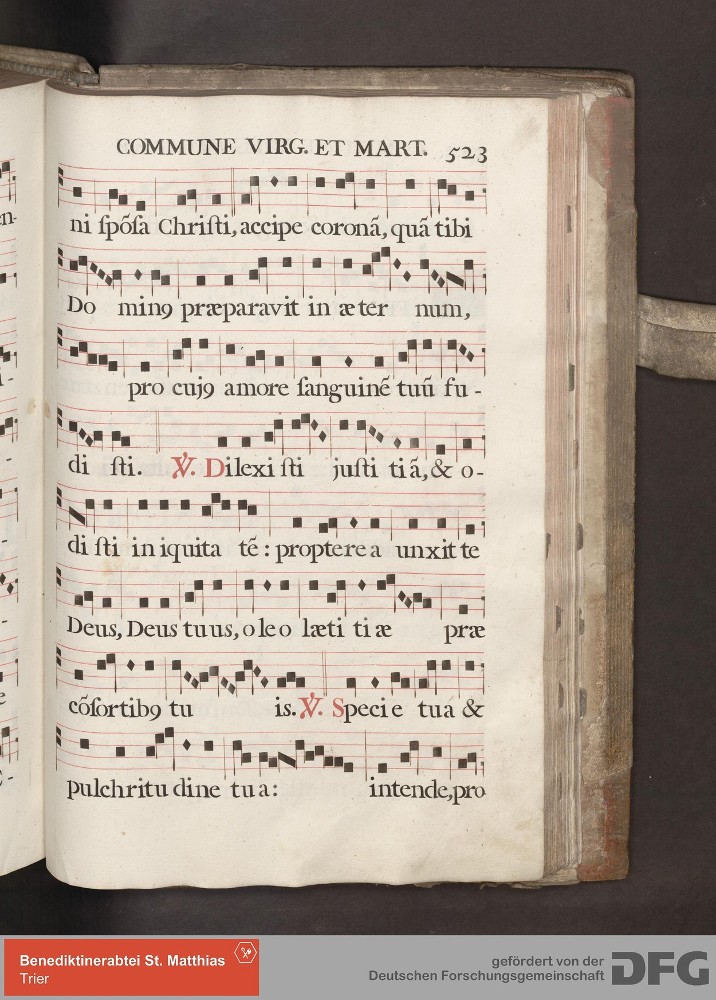 COMMUNE VIRG. ET MART. 523
ni ſpõſa Chriſti, accipe coronã, quã tibi
Do minꝯ præparavit in æter num,
pro cujꝯ amore ſanguinẽ tuũ fu -
di ſti. ℣. Dilexi ſti juſti tiã, & o-
di ſti in iquita tẽ: propterea unxit te
Deus, Deus tuus, oleo læti tiæ præ
cõſortibꝯ tu is. ℣. Specie tuá &
pulchritu dine tua: intende, pro
en-
Benediktinerabtei St. Matthias
Trier
gefördert von der
Deutschen Forschungsgemeinschaft DFG